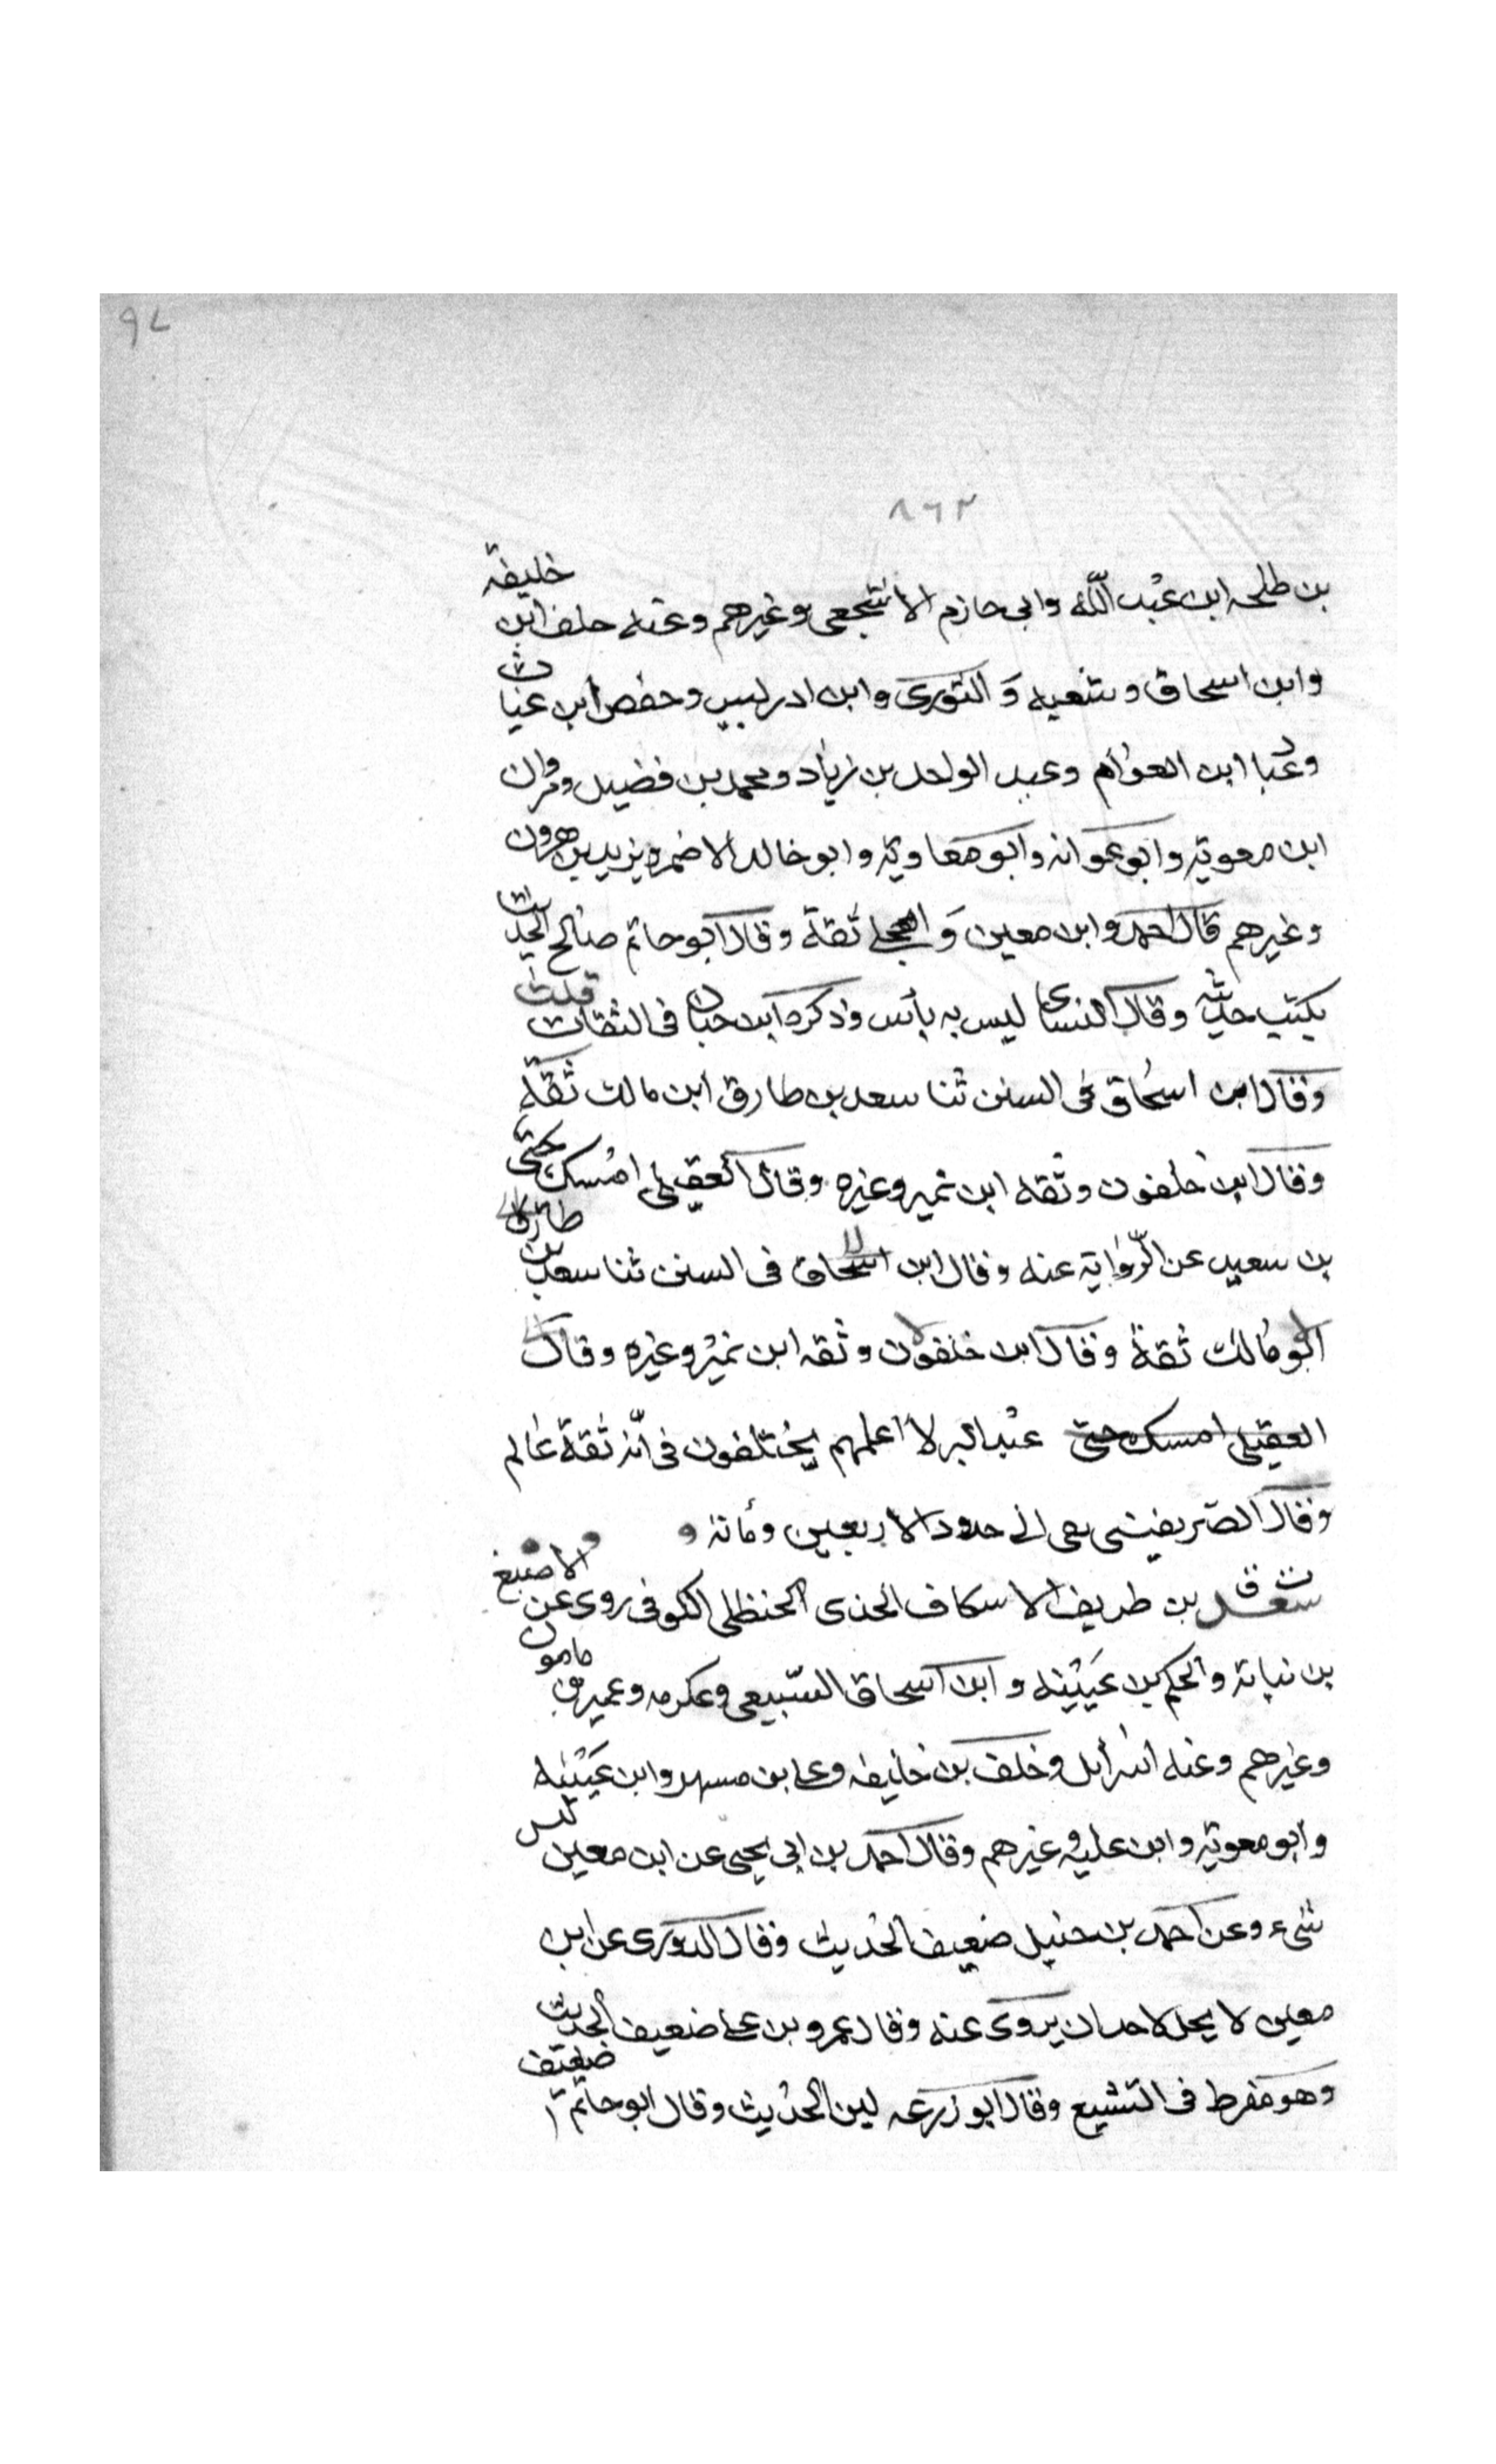 ٩٧
٨٦٣
بن طلحه ابن عبد الله وابى حازم الاشجعى وغيرهم وعنه خلف ابن خليفة
وابن اسحاق وشعبه والثورى وابن ادريس وحفص ابن غياث
وعباد ابن العوام وعبد الواحد بن زياد ومحمد بن فضيل ومروان
ابن معوية وابو عوانه وابو معاوية وابو خالد الاحمر ويزيد بن هرون
وغيرهم قال احمد وابن معين والعجلى ثقة وقال ابو حاتم صالح الحديث
يكتب حديثه وقال النساى ليس به بأس وذكره ابن حبان فى الثقات قلت
وقال ابن اسحاق فى السنن ثنا سعد بن طارق ابن مالك ثقة
وقال ابن خلفون وثقه ابن نمير وغيره وقال العقيلى امسك يحيى
بن سعيد عن الرواية عنه وقال ابن اسحاق فى السنن ثنا سعد بن طارق
ابو مالك ثقة وقال ابن خلفون وثقه ابن نمير وغيره وقال
العقيلى امسك حتى عبد البر لا اعلمهم يختلفون فى انه ثقة عالم
وقال الصريفينى بقى الى حدود الاربعين ومائة
ت ق سعد بن طريف الاسكاف الحذى الحنظلى الكوفى روى عن الاصبغ
بن نباتة والحكم بن عيينه وابن اسحاق السبيعى وعكرمه وعمير بن مامون
وغيرهم وعنه اسرائل وخلف بن خليفه وعلى بن مسهر وابن عيينه
وابو معوية وابن عليه وغيرهم وقال احمد بن ابى يحيى عن ابن معين ليس
شىء وعن احمد بن حنبل ضعيف الحديث وقال الدورى عن ابن
معين لا يحل لاحد ان يروى عنه وقال عمرو بن على ضعيف الحديث
وهو مفرط فى التشيع وقال ابو زرعه لين الحديث وقال ابو حاتم ضعيف